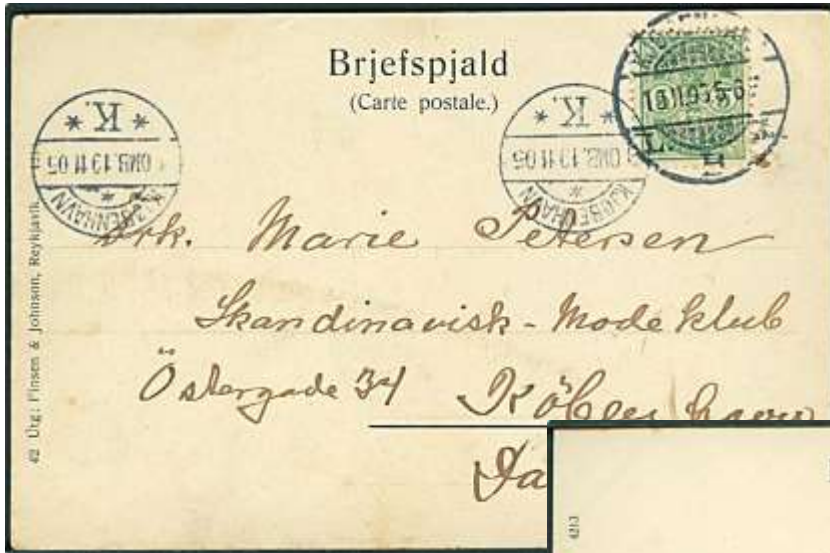 Brjefspjald
(Carte postale.)
* K. *
OMB. 13 11 05
KJØBENHAVN
* K. *
OMB. 13 11 05
KJØBENHAVN
Frk. Marie Petersen
Skandinavisk - Mode klub
Östergade 34 Köbenhavn
Da
42 Útg: Finsen & Johnson, Reykjavik.
4213